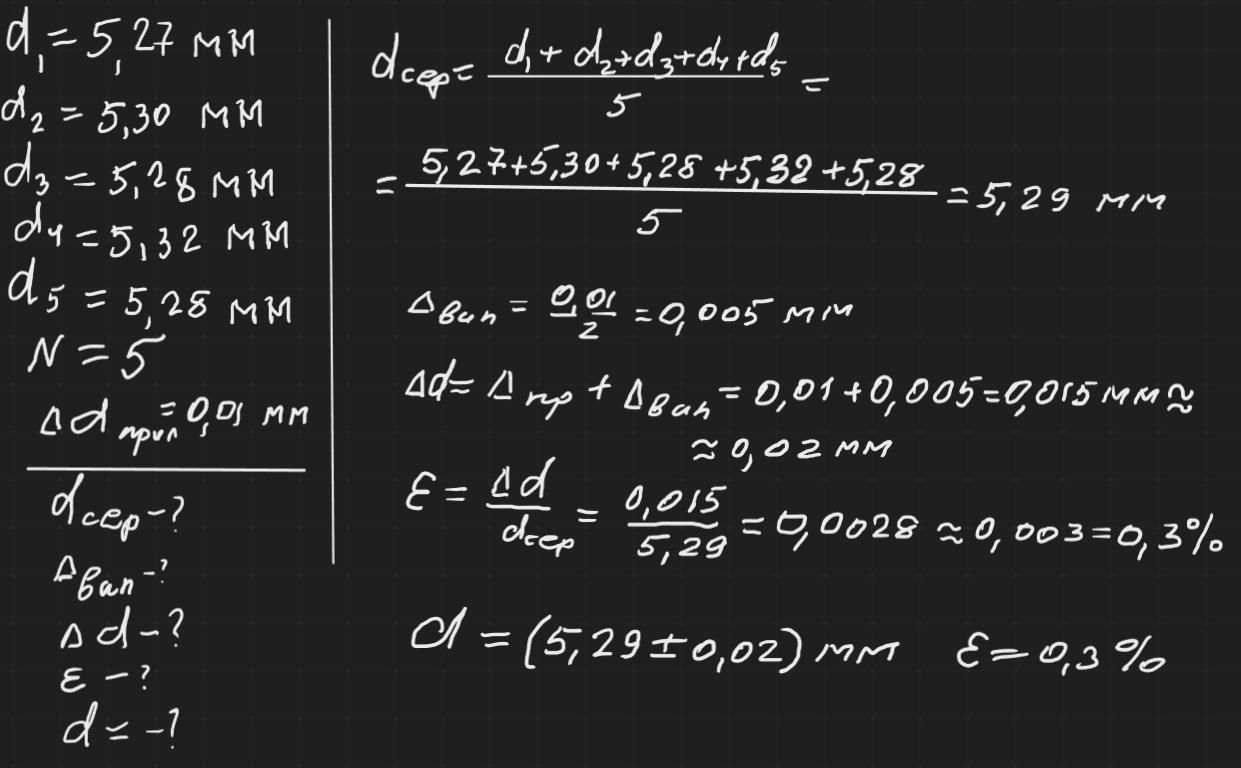 d₁ = 5,27 мм
d₂ = 5,30 мм
d₃ = 5,28 мм
d₄ = 5,32 мм
d₅ = 5,28 мм
N = 5
Δd прил = 0,01 мм
dсер - ?
Δвип - ?
Δd - ?
ε - ?
d = - ?
dсер = (d₁ + d₂ + d₃ + d₄ + d₅) / 5 =
= (5,27 + 5,30 + 5,28 + 5,32 + 5,28) / 5 = 5,29 мм
Δвип = 0,01 / 2 = 0,005 мм
Δd = Δпр + Δвип = 0,01 + 0,005 = 0,015 мм ≈
≈ 0,02 мм
ε = Δd / dсер = 0,015 / 5,29 = 0,0028 ≈ 0,003 = 0,3%
d = (5,29 ± 0,02) мм ε = 0,3%